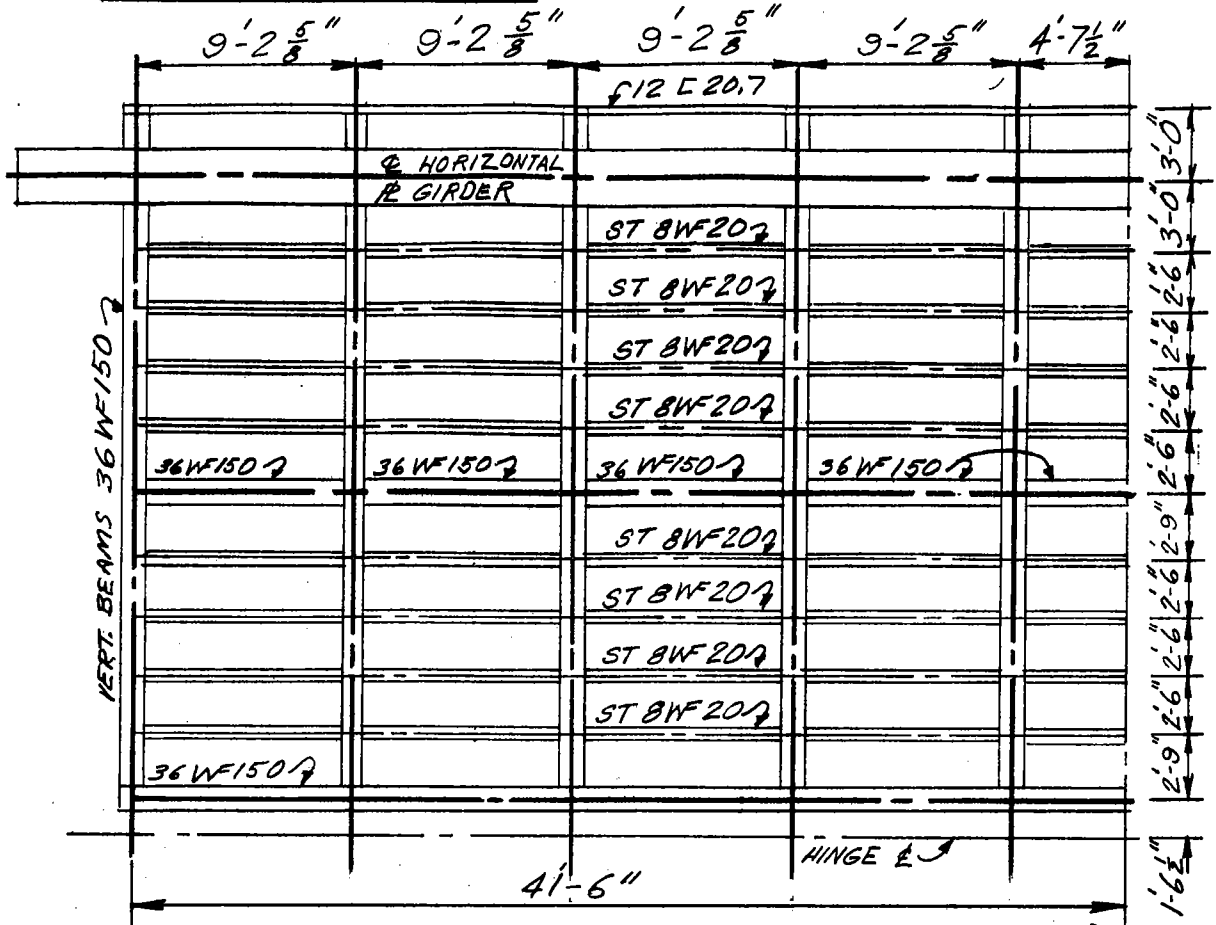 9'-2 5/8" 9'-2 5/8" 9'-2 5/8" 9'-2 5/8" 4'-7 1/2"
12 [ 20.7
℄ HORIZONTAL
℄ GIRDER
ST 8WF20
ST 8WF20
ST 8WF20
ST 8WF20
36 WF150 36 WF150 36 WF150 36 WF150
ST 8WF20
ST 8WF20
ST 8WF20
ST 8WF20
36 WF150
HINGE ℄
41'-6"
VERT. BEAMS 36 WF150
3'-0"
3'-0"
2'-6"
2'-6"
2'-6"
2'-6"
2'-9"
2'-6"
2'-6"
2'-6"
2'-9"
1'-6 1/2"